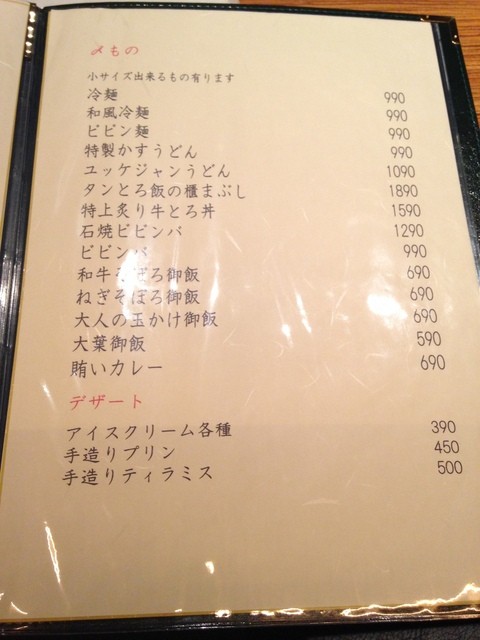 〆もの
小サイズ出来るもの有ります
冷麺 990
和風冷麺 990
ビビン麺 990
特製かすうどん 990
ユッケジャンうどん 1090
タンとろ飯の櫃まぶし 1890
特上炙り牛とろ丼 1590
石焼ビビンバ 1290
ビビンバ 990
和牛そぼろ御飯 690
ねぎそぼろ御飯 690
大人の玉かけ御飯 690
大葉御飯 590
賄いカレー 690
デザート
アイスクリーム各種 390
手造りプリン 450
手造りティラミス 500